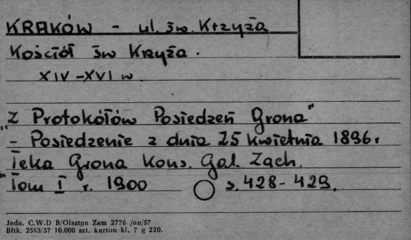 KRAKÓW - ul. św. Krzyża
Kościół św Krzyża.
XIV-XVI w.
"Z Protokółów Posiedzeń Grona"
- Posiedzenie z dnia 25 kwietnia 1896 r
Teka Grona Kons. Gal. Zach.
Tom I r. 1900 s. 428-429.
Jedn. C.W.D B/Olsztyn Zam 2776 /on/57
Bltk. 2563/57 10.000 szt. karton kl. 7 g 220.